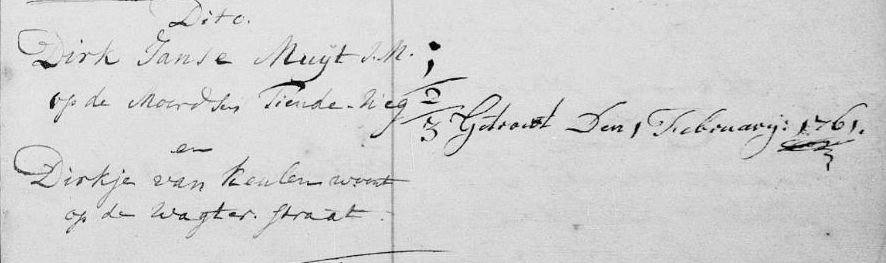 Dito.
Dirk Janse Muijt J.M.
op de Moordse Tiende-Weg
en
Dirkje van Keulen woont
op de Wagter straat.
1
2
3
Getrout Den 1 February: 1761.